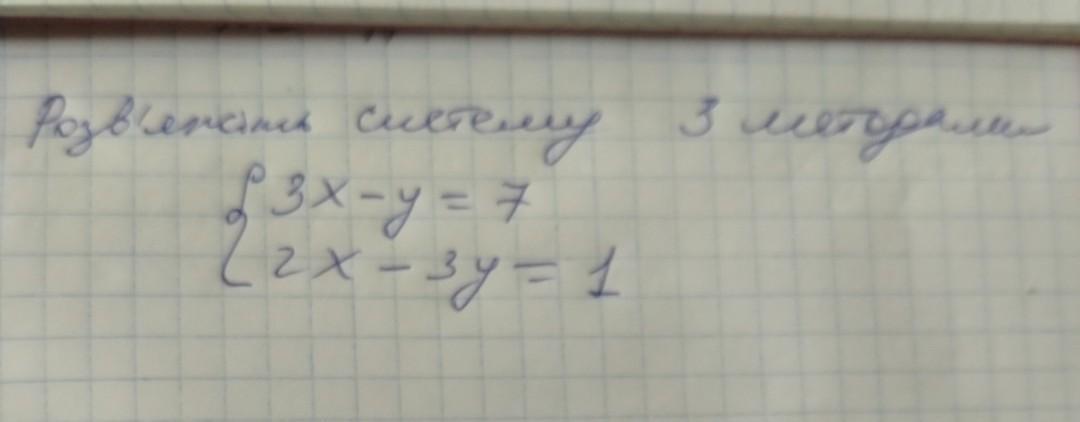 Розв'язать систему 3 методами
{3x-y=7
2x-3y=1